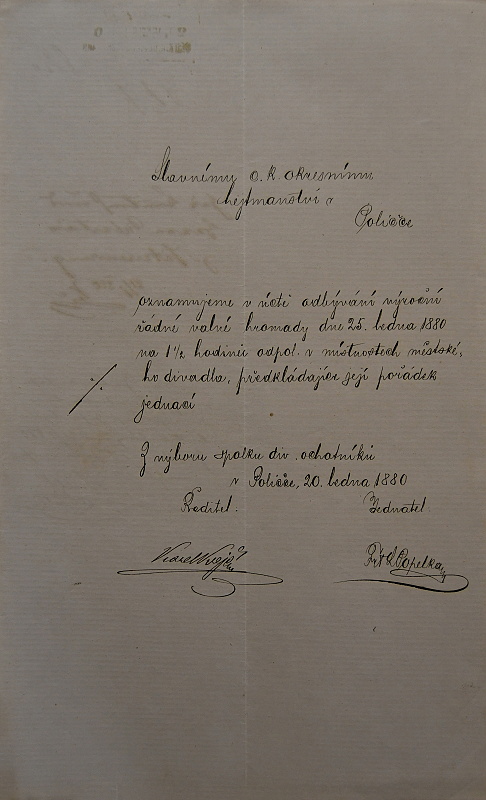 Slavnému c. k. okresnímu
hejtmanství v
Poličce
oznamujeme v úctě odbývání výroční
řádné valné hromady dne 25. ledna 1880
na 1½ hodinu odpol. v místnostech městské,
ho divadla, předkládajíce její pořádek
jednací
Z výboru spolku div. ochotníků
v Poličce, 20. ledna 1880
Ředitel.
Jednatel.
Karel
Popelka